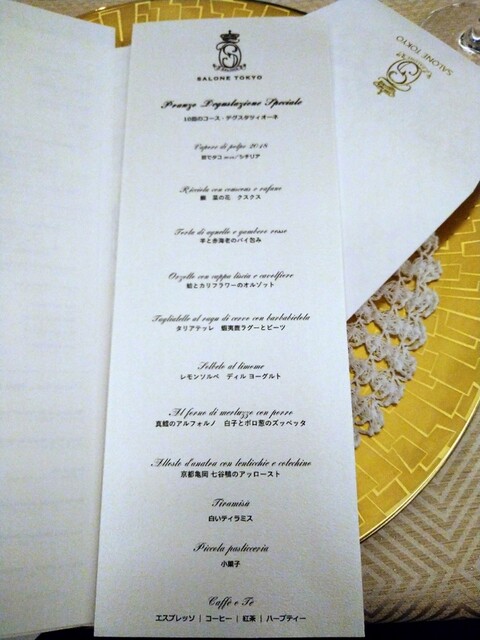 SALONE TOKYO
Pranzo Degustazione Speciale
10皿のコース・デグスタツィオーネ
Capuro di polpo 2018
茹でタコ meets シチリア
Ricciola con couscous e rafano
鰤 菜の花 クスクス
Torta di agnello e gambero rosso
羊と赤海老のパイ包み
Orzotto con cappa liscia e cavolfiore
蛤とカリフラワーのオルゾット
Tagliatelle al ragu di cervo con barbabietola
タリアテッレ 蝦夷鹿ラグーとビーツ
Sorbetto al limone
レモンソルベ ディル ヨーグルト
Al forno di merluzzo con porro
真鱈のアルフォルノ 白子とポロ葱のズッペッタ
Allosto d'anatra con lenticchie e cotechino
京都亀岡 七谷鴨のアッロースト
Tiramisù
白いティラミス
Piccola pasticceria
小菓子
Caffè e Tè
エスプレッソ | コーヒー | 紅茶 | ハーブティー
SALONE TOKYO